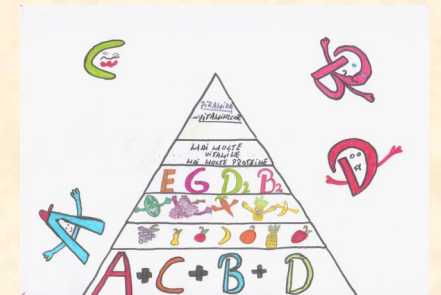 C
R
PIRAMIDA
VITAMINELOR
MAI MULTE
VITAMINE
MAI MULTE PROTEINE
D
E G D₂ B₂
A
A + C + B + D